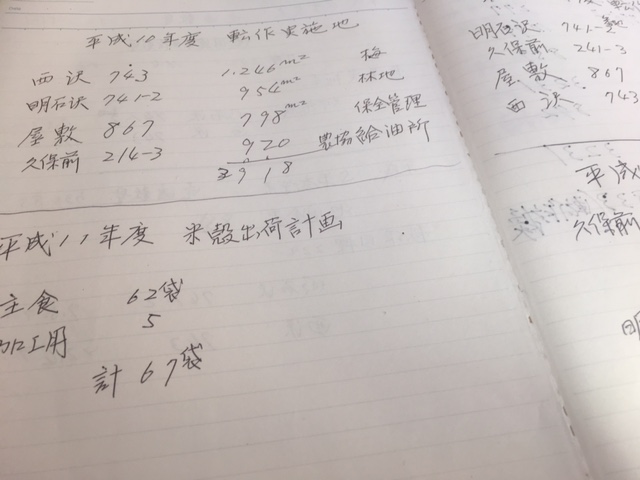 平成10年度 転作実施地
西沢 743 1.246m² 梅
明石沢 741-2 954m² 林地
屋敷 867 798m² 保全管理
久保前 214-3 920 農協給油所
3918
平成11年度 米殻出荷計画
主食 62袋
加工用 5
計 67袋
明石沢 741-2
久保前 241-3
屋敷 867
西沢 743
平成
久保前
明